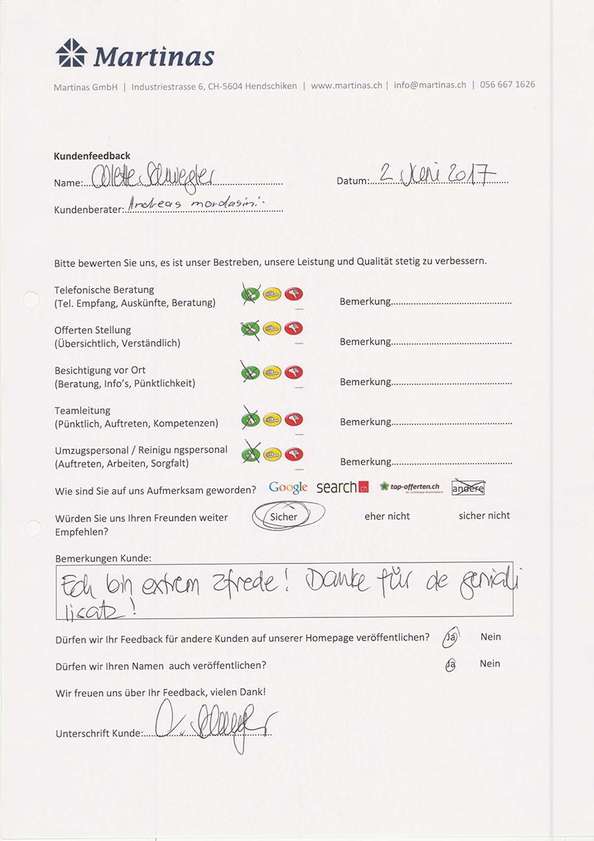 Martinas
Martinas GmbH | Industriestrasse 6, CH-5604 Hendschiken | www.martinas.ch | info@martinas.ch | 056 667 1626
Kundenfeedback
Name: Schwegler Datum: 2. Juni 2017
Kundenberater: Andreas mordasini
Bitte bewerten Sie uns, es ist unser Bestreben, unsere Leistung und Qualität stetig zu verbessern.
Telefonische Beratung
(Tel. Empfang, Auskünfte, Beratung) Bemerkung
Offerten Stellung
(Übersichtlich, Verständlich) Bemerkung
Besichtigung vor Ort
(Beratung, Info's, Pünktlichkeit) Bemerkung
Teamleitung
(Pünktlich, Auftreten, Kompetenzen) Bemerkung
Umzugspersonal / Reinigu ngspersonal
(Auftreten, Arbeiten, Sorgfalt) Bemerkung
Wie sind Sie auf uns Aufmerksam geworden? Google search.ch top-offerten.ch andere
Würden Sie uns Ihren Freunden weiter Sicher eher nicht sicher nicht
Empfehlen?
Bemerkungen Kunde:
Ech bin extrem zfrede! Danke für de geniali
iisatz!
Dürfen wir Ihr Feedback für andere Kunden auf unserer Homepage veröffentlichen? Ja Nein
Dürfen wir Ihren Namen auch veröffentlichen? Ja Nein
Wir freuen uns über Ihr Feedback, vielen Dank!
Unterschrift Kunde: